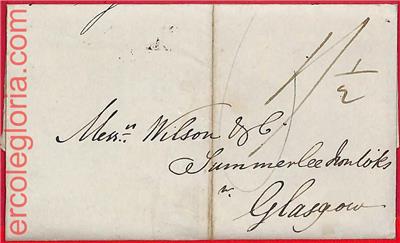 ercolegloria.com
1/ 1/2
Messrs Wilson & Co
Summerlee Iron Works
nr. Glasgow